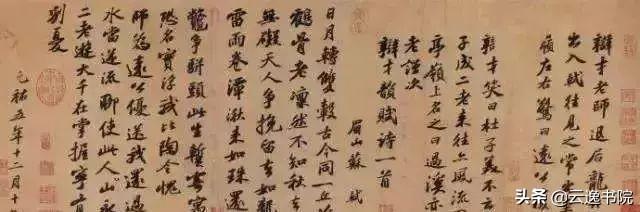 辯才老師退居龍
出入軾往見之常
嶺左右驚曰遠公
辯才笑曰杜子美不云
子成二老來往亦風流
亭嶺上名之曰過溪亦
老謹次
辯才韻賦詩一首
眉山蘇軾
日月轉雙轂古今同一丘
鶴骨老凜然不知秋去
無礙天人爭挽留去如龍
雷雨卷潭湫來如珠還
鼈爭駢頭此生暫寄寓
恐名實浮我比陶令愧
師為遠公優送我還過
水當逆流聊使此人山永
二老遊大千在掌握寧有
別憂
元祐五年十二月十
头条 @云逸书院